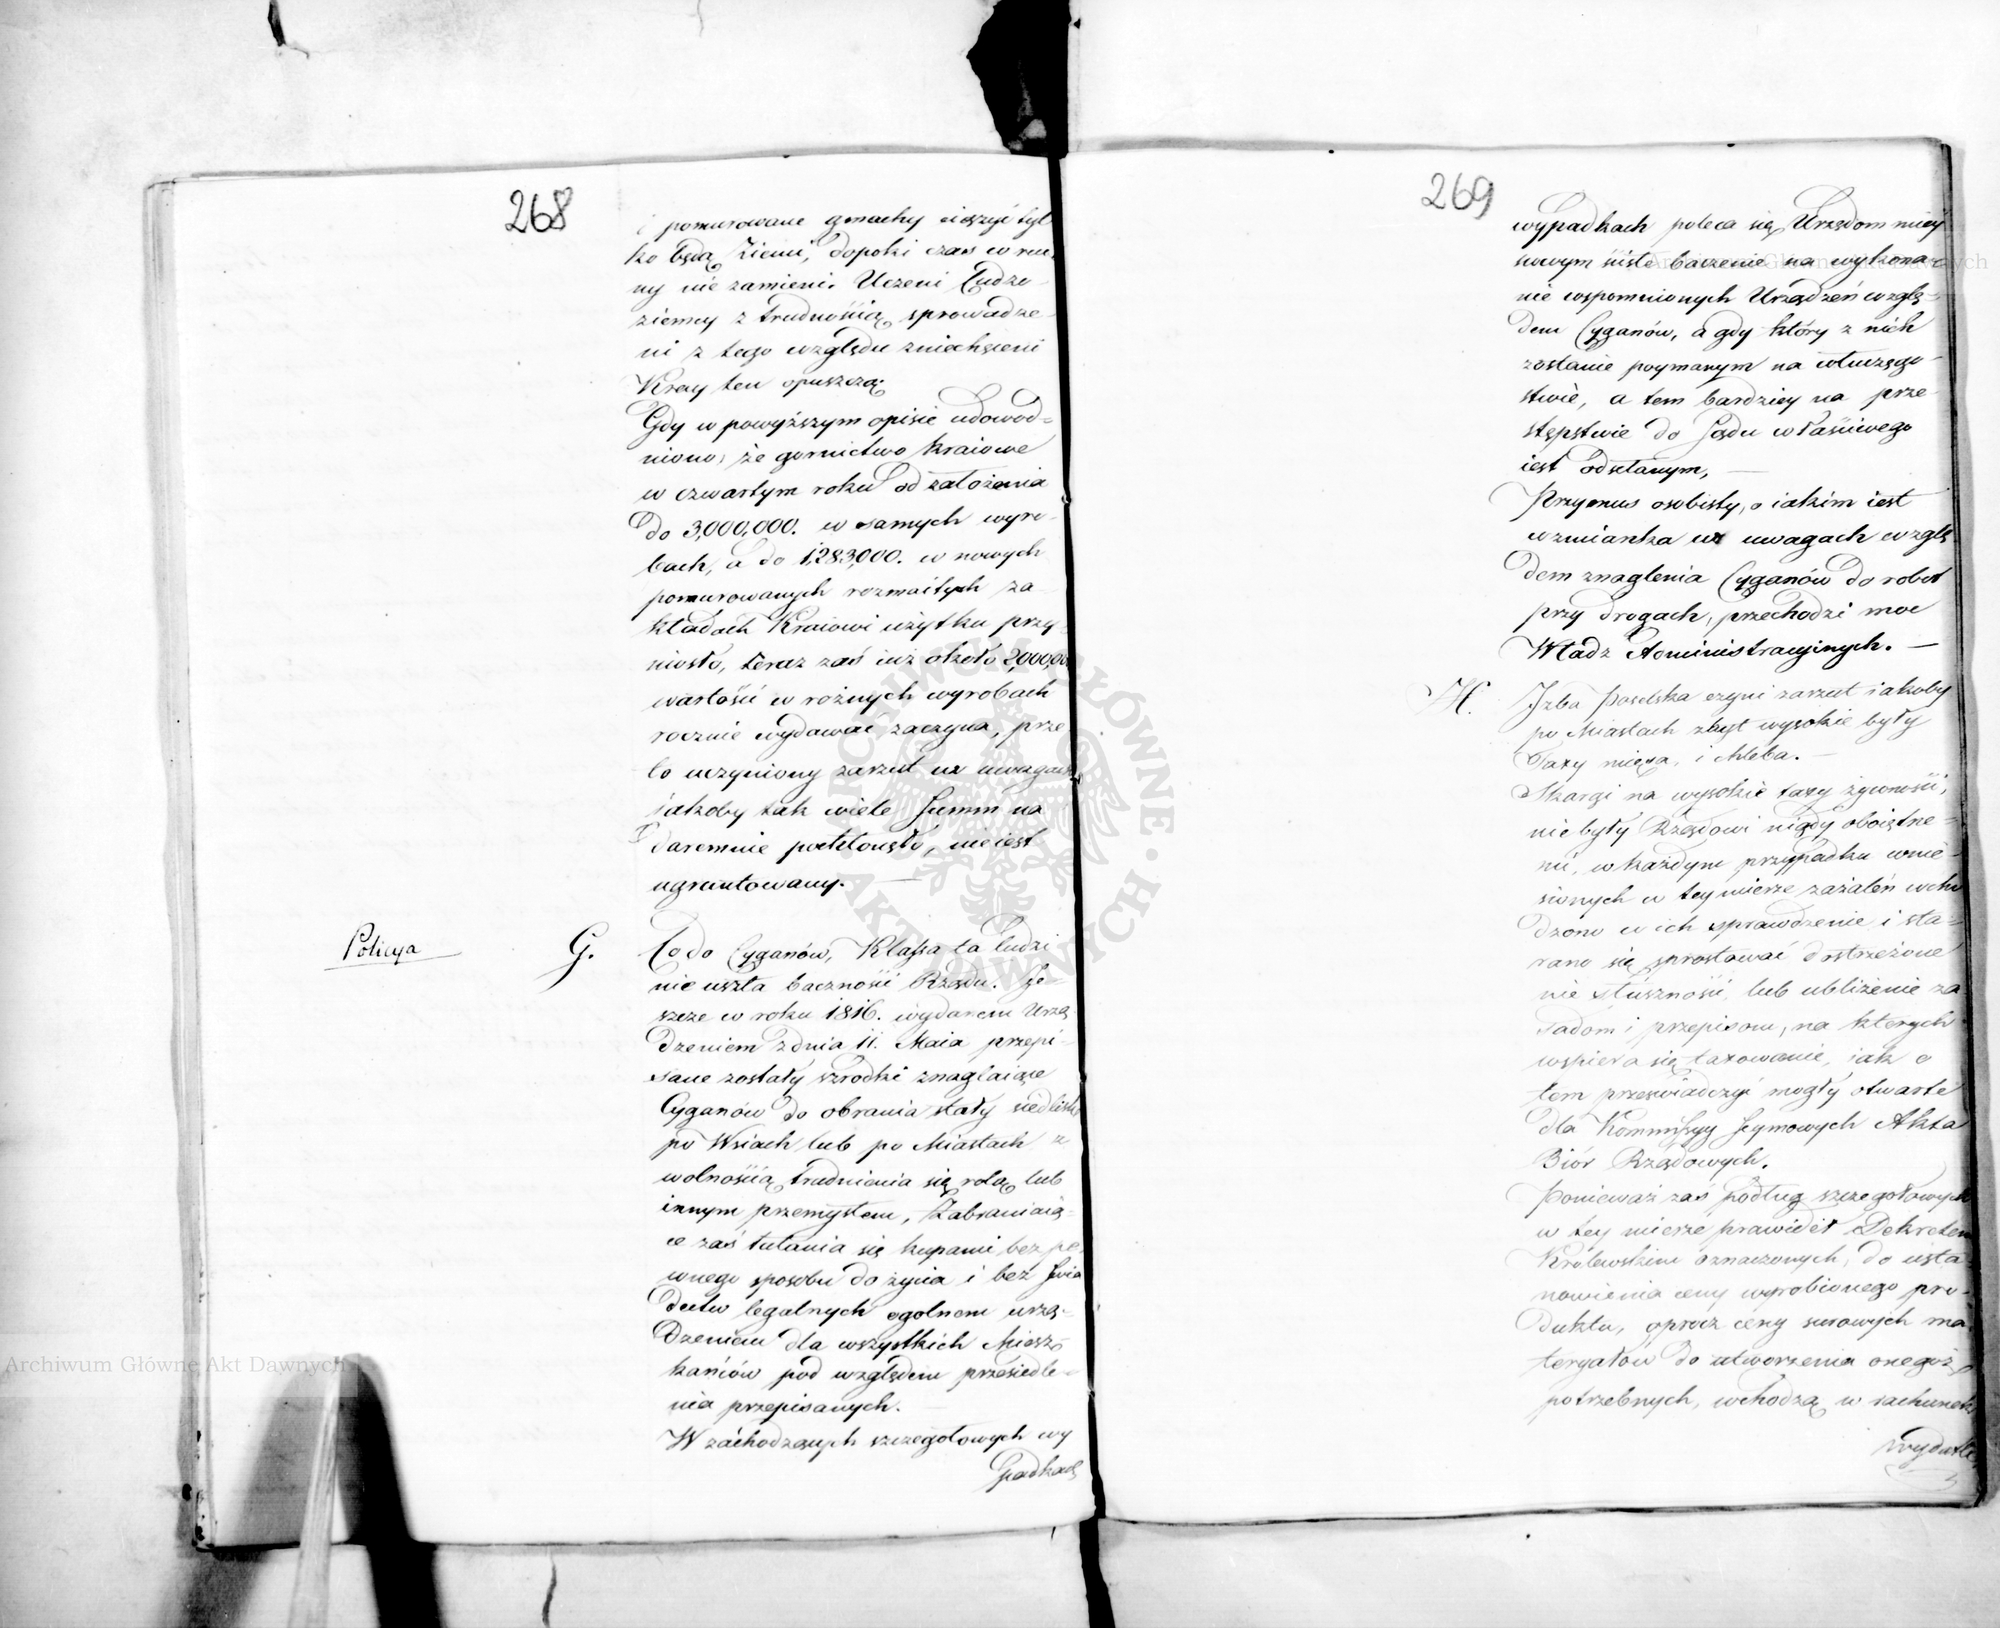 268
i pomurowane gmachy cieszyć tyl
ko będą Ziemi, dopoki czas w rui
ny nie zamieni. Uczeni Cudzo
ziemcy z trudnością sprowadze
ni z tego względu zniechęceni
Kray ten opuszczą.
Gdy w powyższym opisie udowod=
niono, że gornictwo kraiowe
w czwartym roku od założenia
do 3,000,000. w samych wyro-
bach, a do 1,283,000. w nowych
pomurowanych rozmaitych za
kładach Kraiowi użytku przy=
niosło, teraz zaś iuż około 2,000,00
wartości w rożnych wyrobach
rocznie wydawać zaczyna, prze
to uczyniony zarzut w uwagach
iakoby tak wiele Summ na
daremnie pochłonęło, nie iest
ugruntowany. —
Policya
G.
Co do Cyganów, Klassa ta ludzi
nie uszła baczności Rządu. Je=
szcze w roku 1816. wydanem Urzą
dzeniem z dnia 11. Maia przepi-
sane zostały szrodki znaglaiące
Cyganów do obrania stały siedlisk
po Wsiach lub po Miastach z
wolnością trudnienia się rolą lub
innym przemysłem, Zabraniaią=
ce zaś tułania się kupami bez pe
wnego sposobu do życia i bez świa
dectw legalnych ogolnem urzą=
dzeniem dla wszystkich Miesz=
kańców pod względem przesiedle=
nia przepisanych.
W zachodzących szczegołowych wy
padkach
269
wypadkach poleca się Urzędom miey
scowym ścisłe baczenie na wykona=
nie wspomnionych Urządzeń wzglę=
dem Cyganów, a gdy który z nich
zostanie poymanym na włuczęgo-
stwie, a tem bardziey na prze
stępstwie do Sądu właściwego
iest odsełanym, —
Przymus osobisty, o iakim iest
wzmianka w uwagach wzglę
dem znaglenia Cyganów do robot
przy drogach, przechodzi moc
Władz Administracyinych. —
H.
Izba Poselska czyni zarzut iakoby
po Miastach zbyt wysokie były
Taxy mięsa, i chleba. —
Skargi na wysokie taxy żywności,
nie były Rządowi nigdy oboiętne=
mi, w każdym przypadku wnie-
sionych w tey mierze zażaleń wcho
dzono w ich sprawdzenie i sta=
rano się sprostować dostrzeżone
nie słuszności, lub ubliżenie za
sadom i przepisom, na których
wspiera się taxowanie, iak o
tem przeświadczyć mogły otwarte
dla Kommissyy Seymowych Akta
Biór Rządowych.
Ponieważ zaś podług szczegołowych
w tey mierze prawideł Dekretem
Królewskim oznaczonych, do usta=
nowienia ceny wyrobionego pro-
duktu, oprocz ceny surowych ma
teryałów do utworzenia onegoż
potrzebnych, wchodzą w rachunek
wydatki
Archiwum Główne Akt Dawnych
Archiwum Główne Akt Dawnych
ARCHIWUM GŁÓWNE · AKT DAWNYCH ·